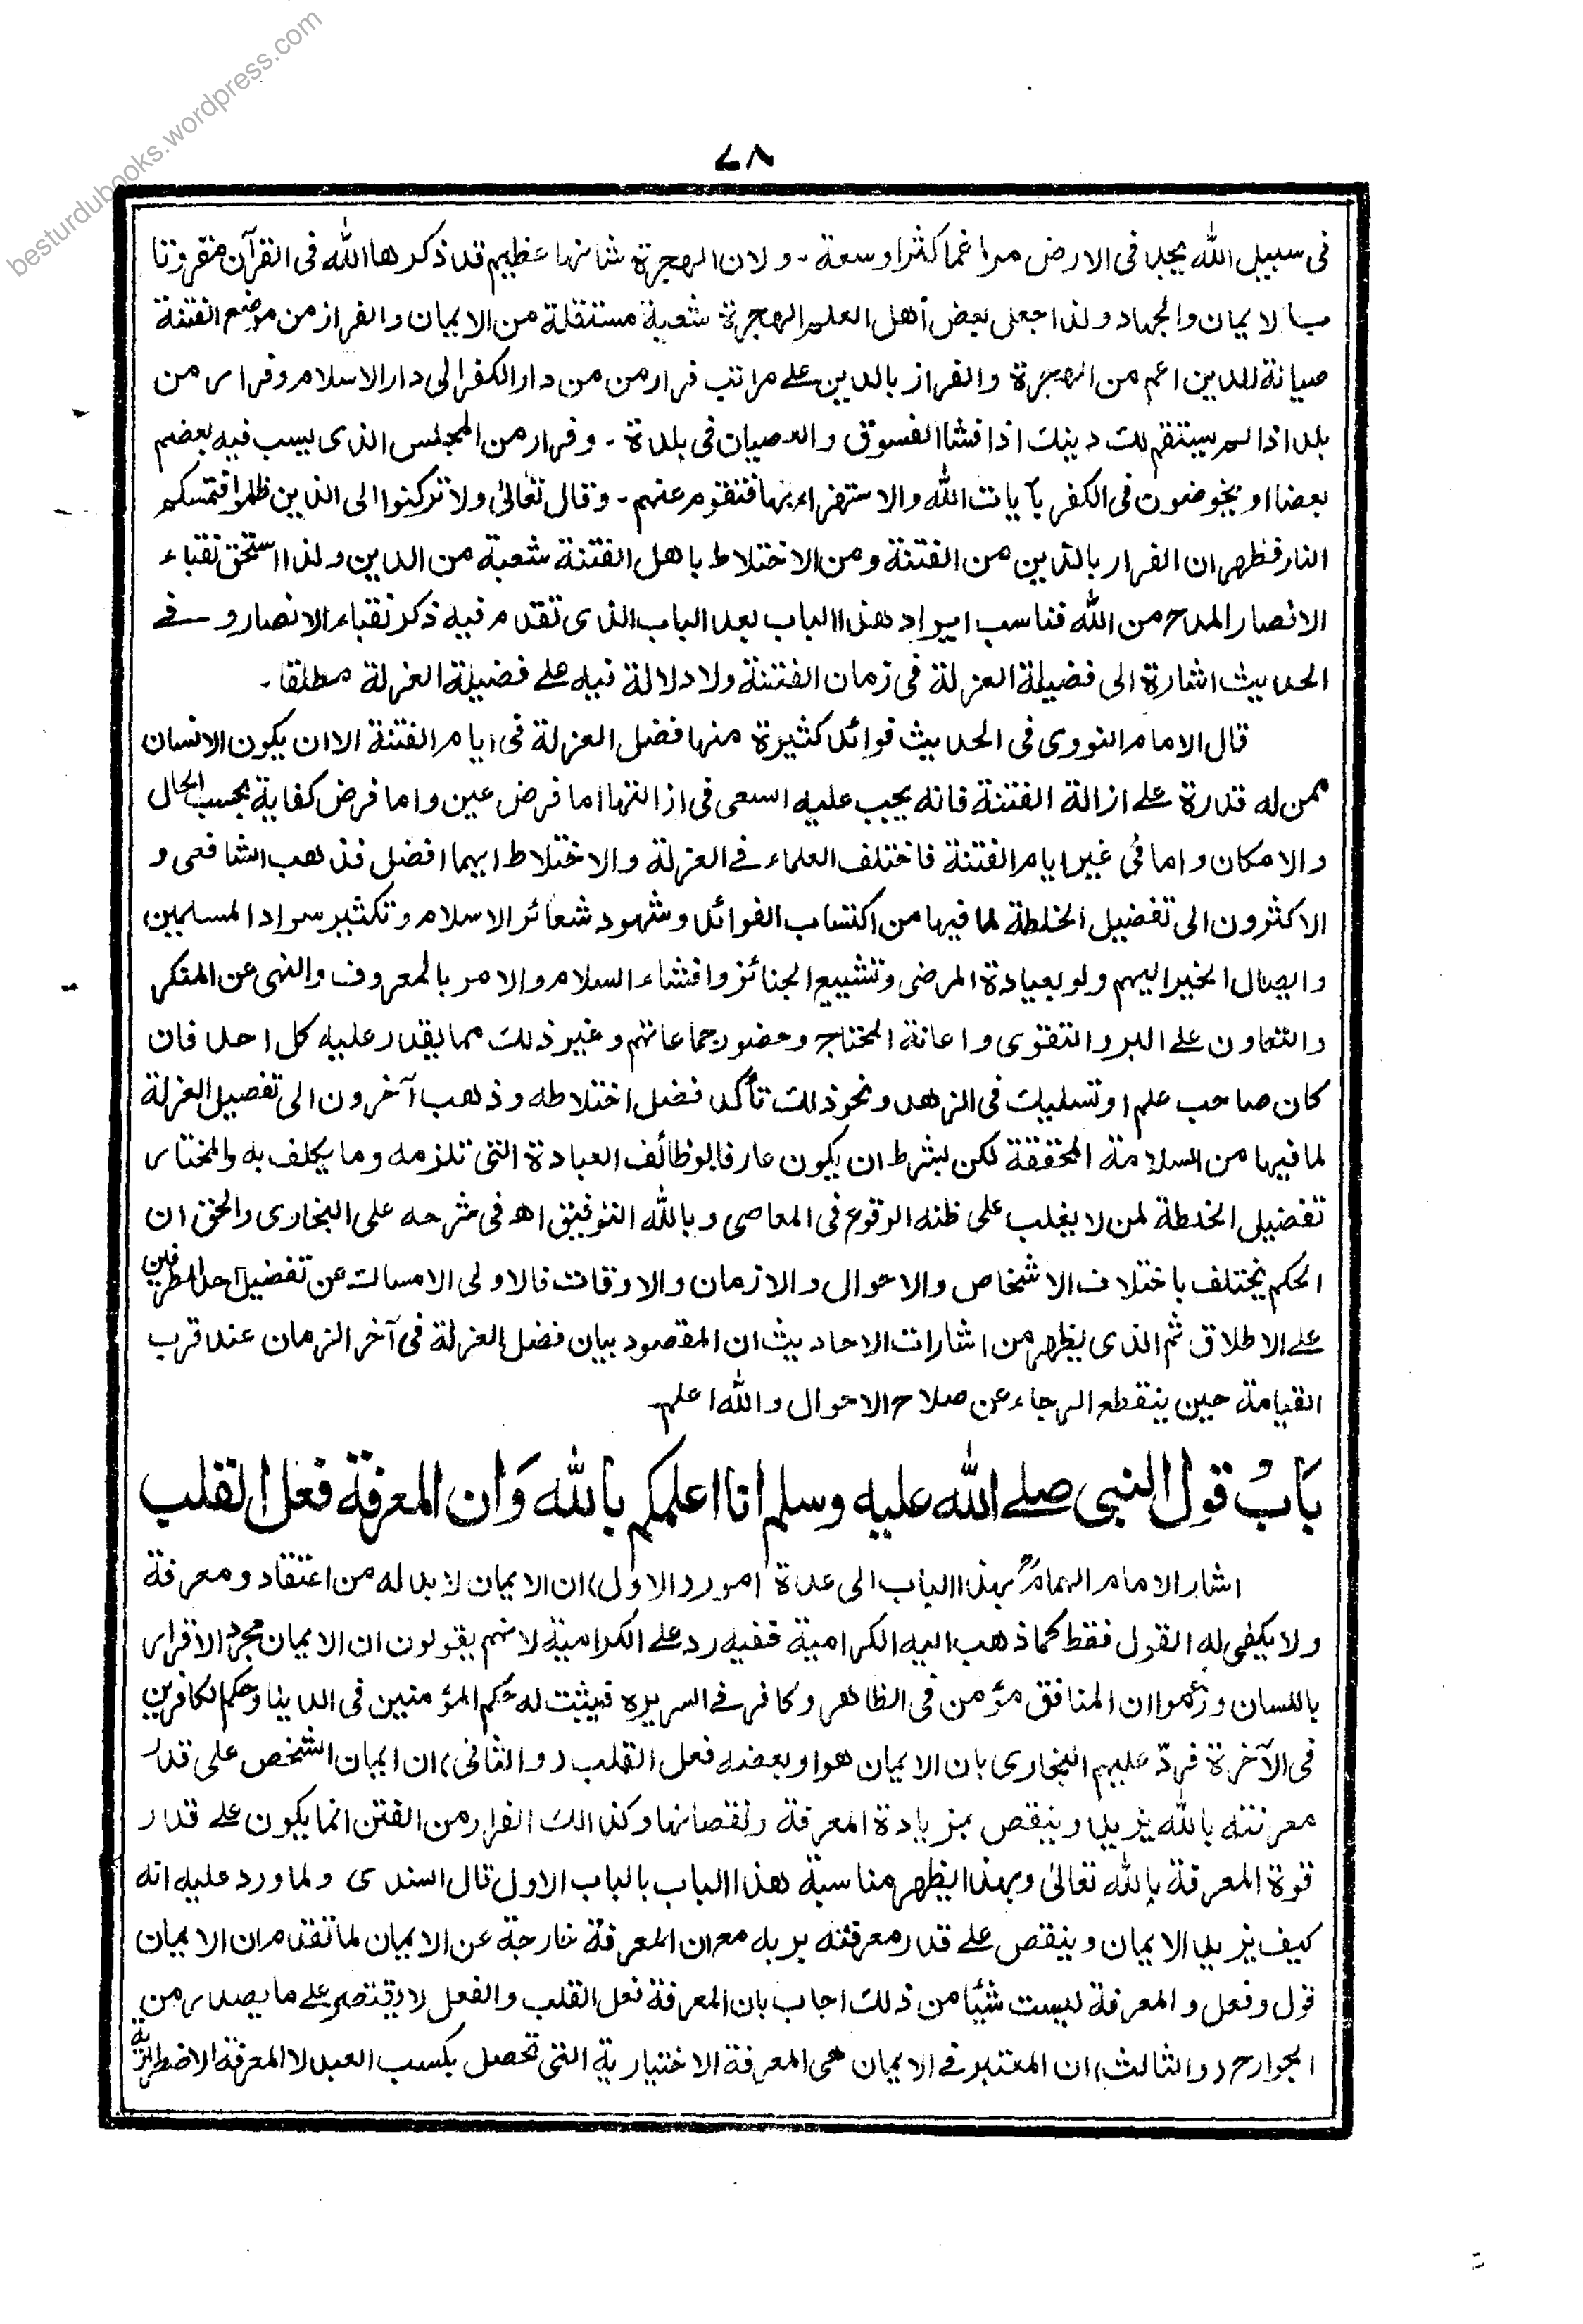 besturdubooks.wordpress.com
٧٨
فی سبیل الله یجد فی الارض مراغما کثیرا وسعة - ولان الهجرة شانها عظیم قد ذکرها الله فی القرآن مقرونا
بالایمان والجهاد ولذا جعل بعض أهل العلم الهجرة شعبة مستقلة من الایمان والفرار من موضع الفتنة
صیانة للدین اعم من الهجرة والفرار بالدین علی مراتب فرار من من دار الکفر الی دار الاسلام وفرار من
بلد اذا لم یستقم لك دینك اذا فشا الفسوق والعصیان فی بلدة - وفرار من المجلس الذی یسب فیه بعضهم
بعضا او یخوضون فی الکفر بآیات الله والاستهزاء بها فتقوم عنهم - وقال تعالیٰ ولا ترکنوا الی الذین ظلموا فتمسکم
النار فظهر ان الفرار بالدین من الفتنة ومن الاختلاط باهل الفتنة شعبة من الدین ولذا استحق نقباء
الانصار المدح من الله فناسب ایراد هذا الباب بعد الباب الذی تقدم فیه ذکر نقباء الانصار و فی
الحدیث اشارة الی فضیلة العزلة فی زمان الفتنة ولا دلالة فیه علی فضیلة العزلة مطلقا -
قال الامام النووی فی الحدیث فوائد کثیرة منها فضل العزلة فی ایام الفتنة الا ان یکون الانسان
ممن له قدرة علی ازالة الفتنة فانه یجب علیه السعی فی ازالتها اما فرض عین واما فرض کفایة بحسب الحال
والامکان واما فی غیر ایام الفتنة فاختلف العلماء فی العزلة والاختلاط ایهما افضل فذهب الشافعی و
الاکثرون الی تفضیل الخلطة لما فیها من اکتساب الفوائد وشهود شعائر الاسلام وتکثیر سواد المسلمین
وایصال الخیر الیهم ولو بعیادة المرضی وتشییع الجنائز وافشاء السلام والامر بالمعروف والنهی عن المنکر
والتعاون علی البر والتقوی واعانة المحتاج وحضور جماعاتهم وغیر ذلك مما یقدر علیه کل احد فان
کان صاحب علم او تسلیك فی الزهد ونحو ذلك تأکد فضل اختلاطه وذهب آخرون الی تفضیل العزلة
لما فیها من السلامة المحققة لکن بشرط ان یکون عارفا بوظائف العبادة التی تلزمه وما یکلف به والمختار
تفضیل الخلطة لمن لا یغلب علی ظنه الوقوع فی المعاصی وبالله التوفیق اھ فی شرحه علی البخاری والحق ان
الحکم یختلف باختلاف الاشخاص والاحوال والازمان والاوقات فالاولی الامساك عن تفضیل احد الطرفین
علی الاطلاق ثم الذی یظهر من اشارات الاحادیث ان المقصود بیان فضل العزلة فی آخر الزمان عند قرب
القیامة حین ینقطع الرجاء عن صلاح الاحوال والله اعلم
بَابُ قول النبی صلی الله علیه وسلم انا اعلمکم بالله وَان المعرفة فعل القلب
اشار الامام الهمامؒ بهذا الباب الی عدة امور (الاول) ان الایمان لا بد له من اعتقاد ومعرفة
ولا یکفی له القول فقط کما ذهب الیه الکرامیة ففیه رد علی الکرامیة لانهم یقولون ان الایمان مجرد الاقرار
باللسان وزعموا ان المنافق مؤمن فی الظاهر وکافر فی السریرة فیثبت له حکم المؤمنین فی الدنیا وحکم الکافرین
فی الآخرة فردّ علیهم البخاری بان الایمان هو او بعضه فعل القلب (والثانی) ان ایمان الشخص علی قدر
معرفته بالله یزید وینقص بزیادة المعرفة ونقصانها وکذالك الفرار من الفتن انما یکون علی قدر
قوة المعرفة بالله تعالیٰ وبهذا یظهر مناسبة هذا الباب بالباب الاول قال السندی ولما ورد علیه انه
کیف یزید الایمان وینقص علی قدر معرفته بربه مع ان المعرفة خارجة عن الایمان لما تقدم ان الایمان
قول وفعل والمعرفة لیست شیئا من ذلك اجاب بان المعرفة فعل القلب والفعل لا یقتصر علی ما یصدر من
الجوارح (والثالث) ان المعتبر فی الایمان هی المعرفة الاختیاریة التی تحصل بکسب العبد لا المعرفة الاضطراریة